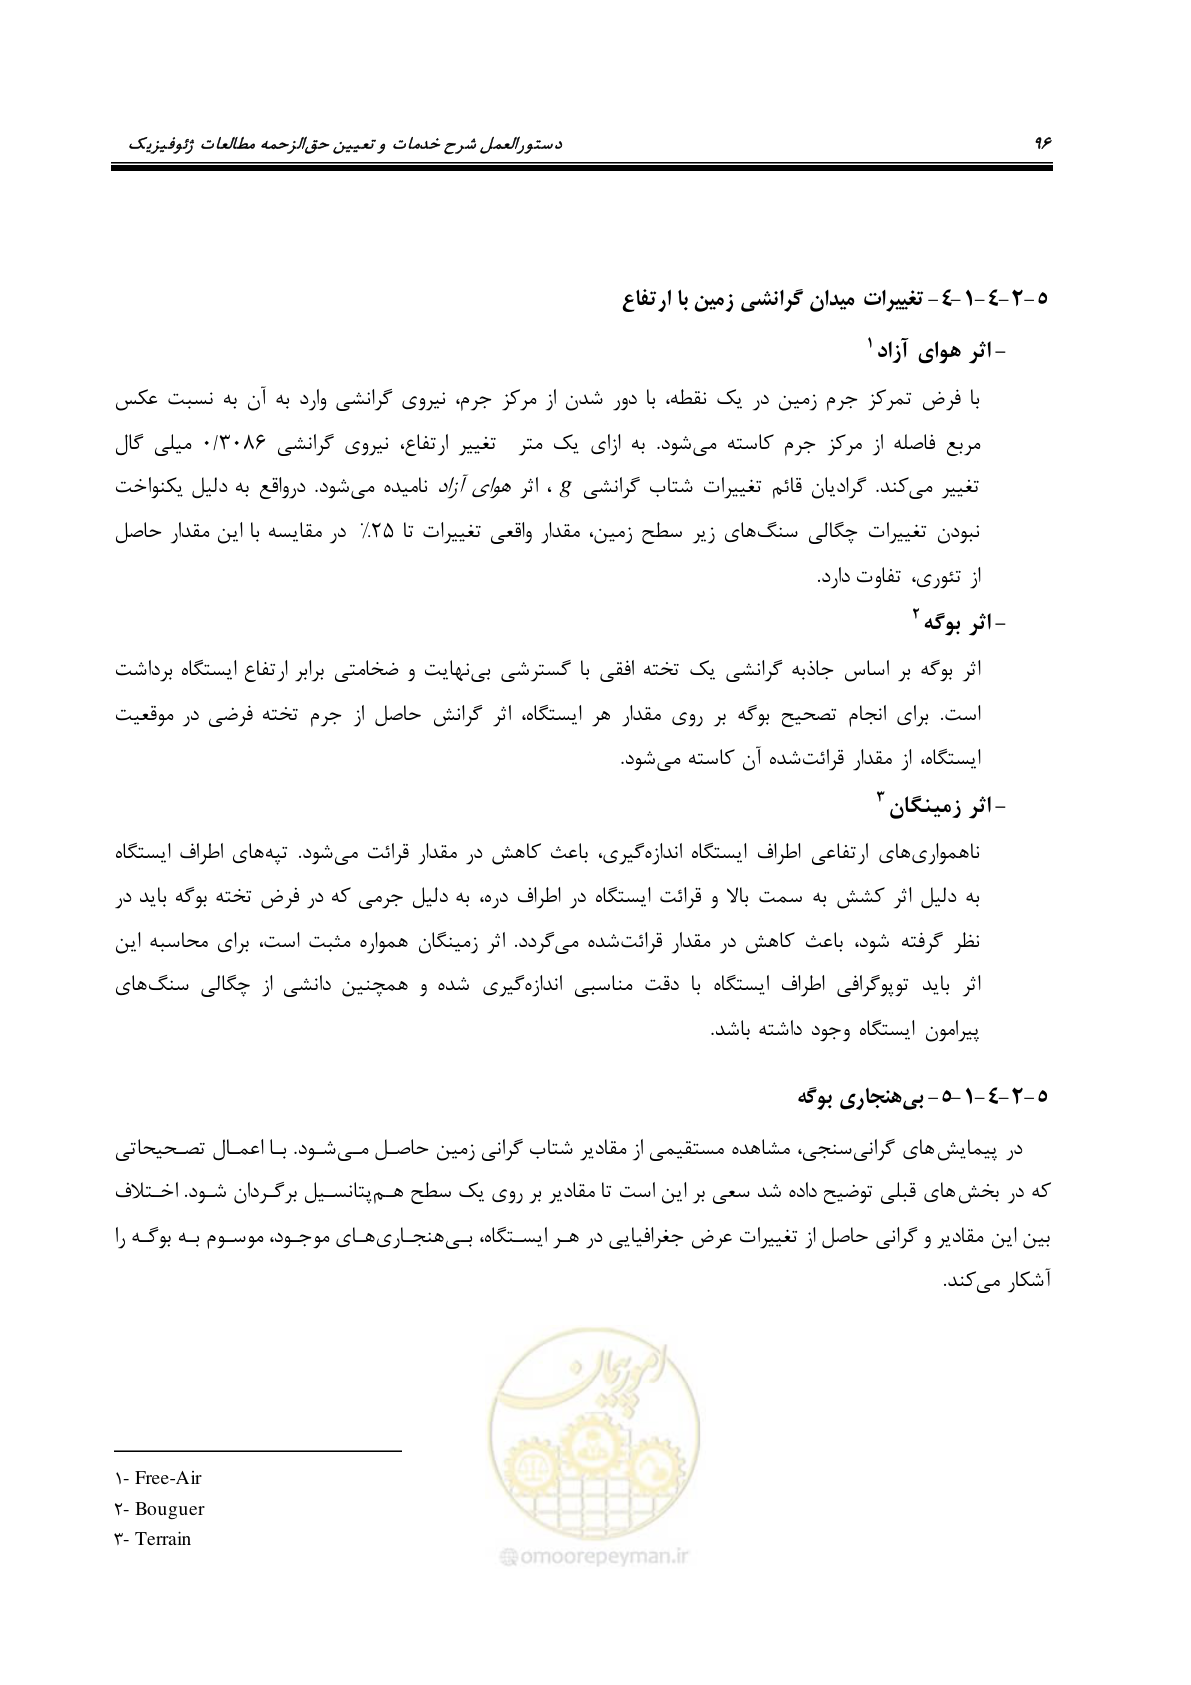 ۹۶
دستورالعمل شرح خدمات و تعیین حق‌الزحمه مطالعات ژئوفیزیک
۵-۲-۴-۱-۴- تغییرات میدان گرانشی زمین با ارتفاع
- اثر هوای آزاد۱
با فرض تمرکز جرم زمین در یک نقطه، با دور شدن از مرکز جرم، نیروی گرانشی وارد به آن به نسبت عکس
مربع فاصله از مرکز جرم کاسته می‌شود. به ازای یک متر تغییر ارتفاع، نیروی گرانشی ۰/۳۰۸۶ میلی گال
تغییر می‌کند. گرادیان قائم تغییرات شتاب گرانشی g ، اثر هوای آزاد نامیده می‌شود. درواقع به دلیل یکنواخت
نبودن تغییرات چگالی سنگ‌های زیر سطح زمین، مقدار واقعی تغییرات تا ۲۵٪ در مقایسه با این مقدار حاصل
از تئوری، تفاوت دارد.
- اثر بوگه۲
اثر بوگه بر اساس جاذبه گرانشی یک تخته افقی با گسترشی بی‌نهایت و ضخامتی برابر ارتفاع ایستگاه برداشت
است. برای انجام تصحیح بوگه بر روی مقدار هر ایستگاه، اثر گرانش حاصل از جرم تخته فرضی در موقعیت
ایستگاه، از مقدار قرائت‌شده آن کاسته می‌شود.
- اثر زمینگان۳
ناهمواری‌های ارتفاعی اطراف ایستگاه اندازه‌گیری، باعث کاهش در مقدار قرائت می‌شود. تپه‌های اطراف ایستگاه
به دلیل اثر کشش به سمت بالا و قرائت ایستگاه در اطراف دره، به دلیل جرمی که در فرض تخته بوگه باید در
نظر گرفته شود، باعث کاهش در مقدار قرائت‌شده می‌گردد. اثر زمینگان همواره مثبت است، برای محاسبه این
اثر باید توپوگرافی اطراف ایستگاه با دقت مناسبی اندازه‌گیری شده و همچنین دانشی از چگالی سنگ‌های
پیرامون ایستگاه وجود داشته باشد.
۵-۲-۴-۱-۵- بی‌هنجاری بوگه
در پیمایش‌های گرانی‌سنجی، مشاهده مستقیمی از مقادیر شتاب گرانی زمین حاصل می‌شود. با اعمال تصحیحاتی
که در بخش‌های قبلی توضیح داده شد سعی بر این است تا مقادیر بر روی یک سطح هم‌پتانسیل برگردان شود. اختلاف
بین این مقادیر و گرانی حاصل از تغییرات عرض جغرافیایی در هر ایستگاه، بی‌هنجاری‌های موجود، موسوم به بوگه را
آشکار می‌کند.
امور پیمان
۱- Free-Air
۲- Bouguer
۳- Terrain
@omoorepeyman.ir